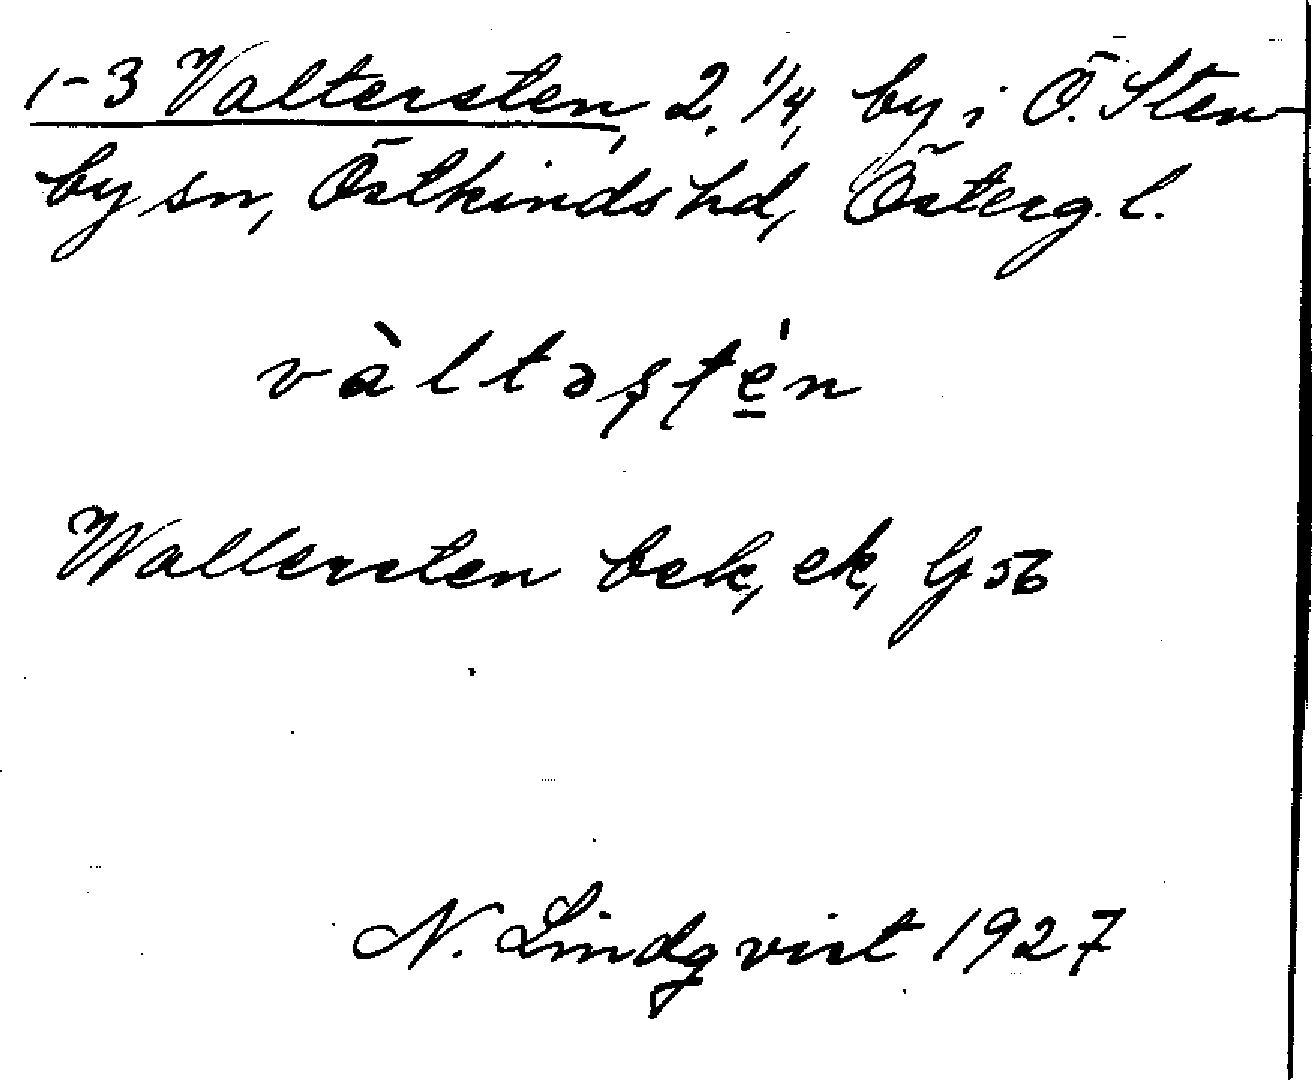 1-3 Valtersten, 2 1/4, by i Ö. Sten-
by sn, Östkinds hd, Österg. l.
vàltəʂtén
Wallersten bek, ek, G 56
N. Lindqvist 1927